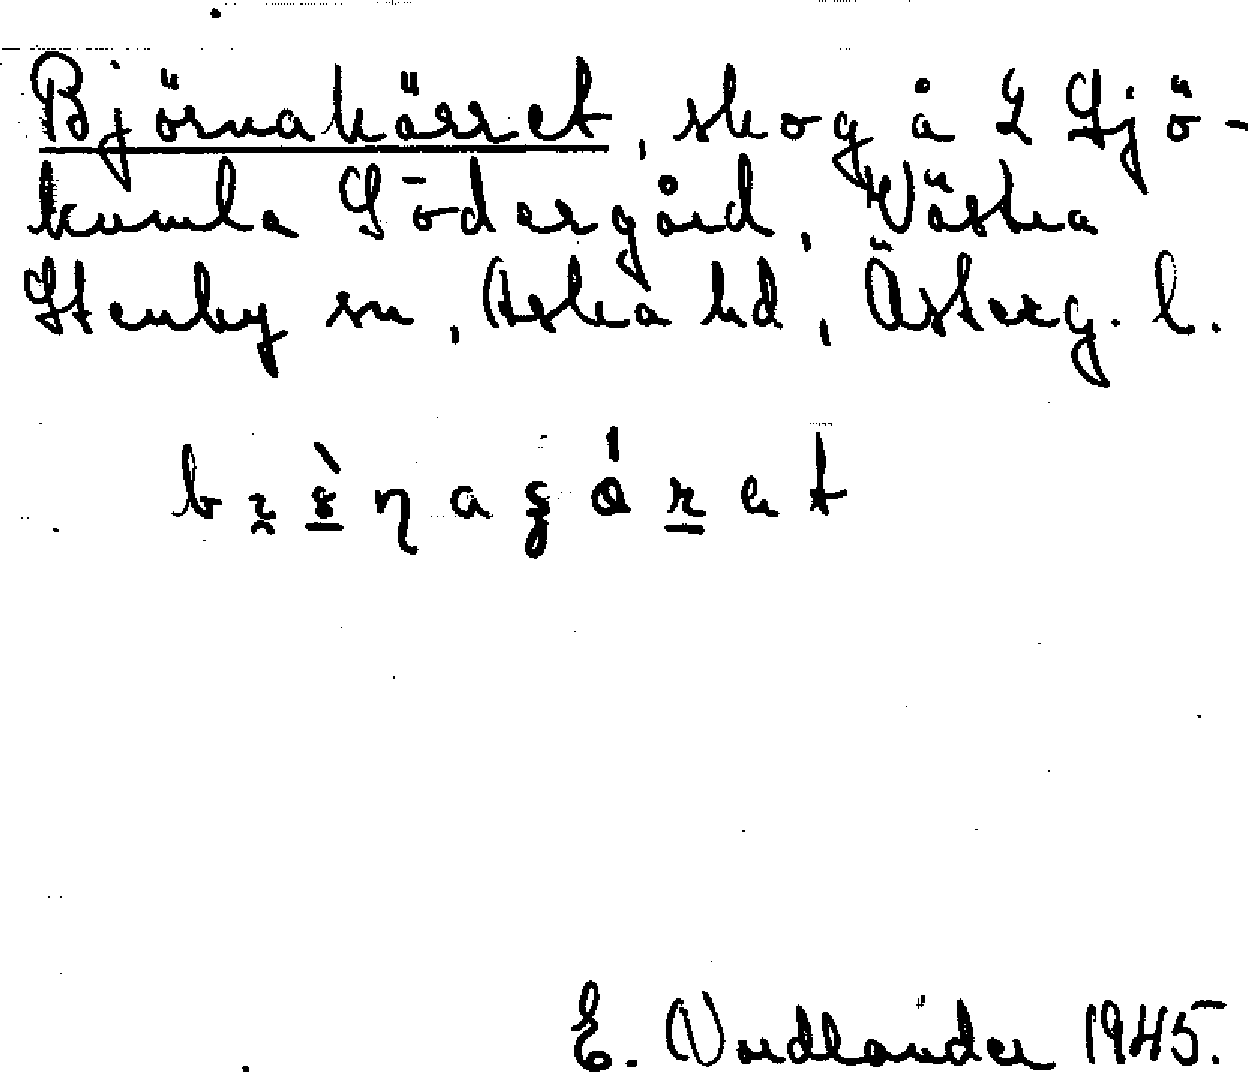 Björnakärret, skog å 2 Sjö-
kumla Södergård, Västra
Stenby sn, Aska hd, Österg. l.
E. Nordlander 1945.